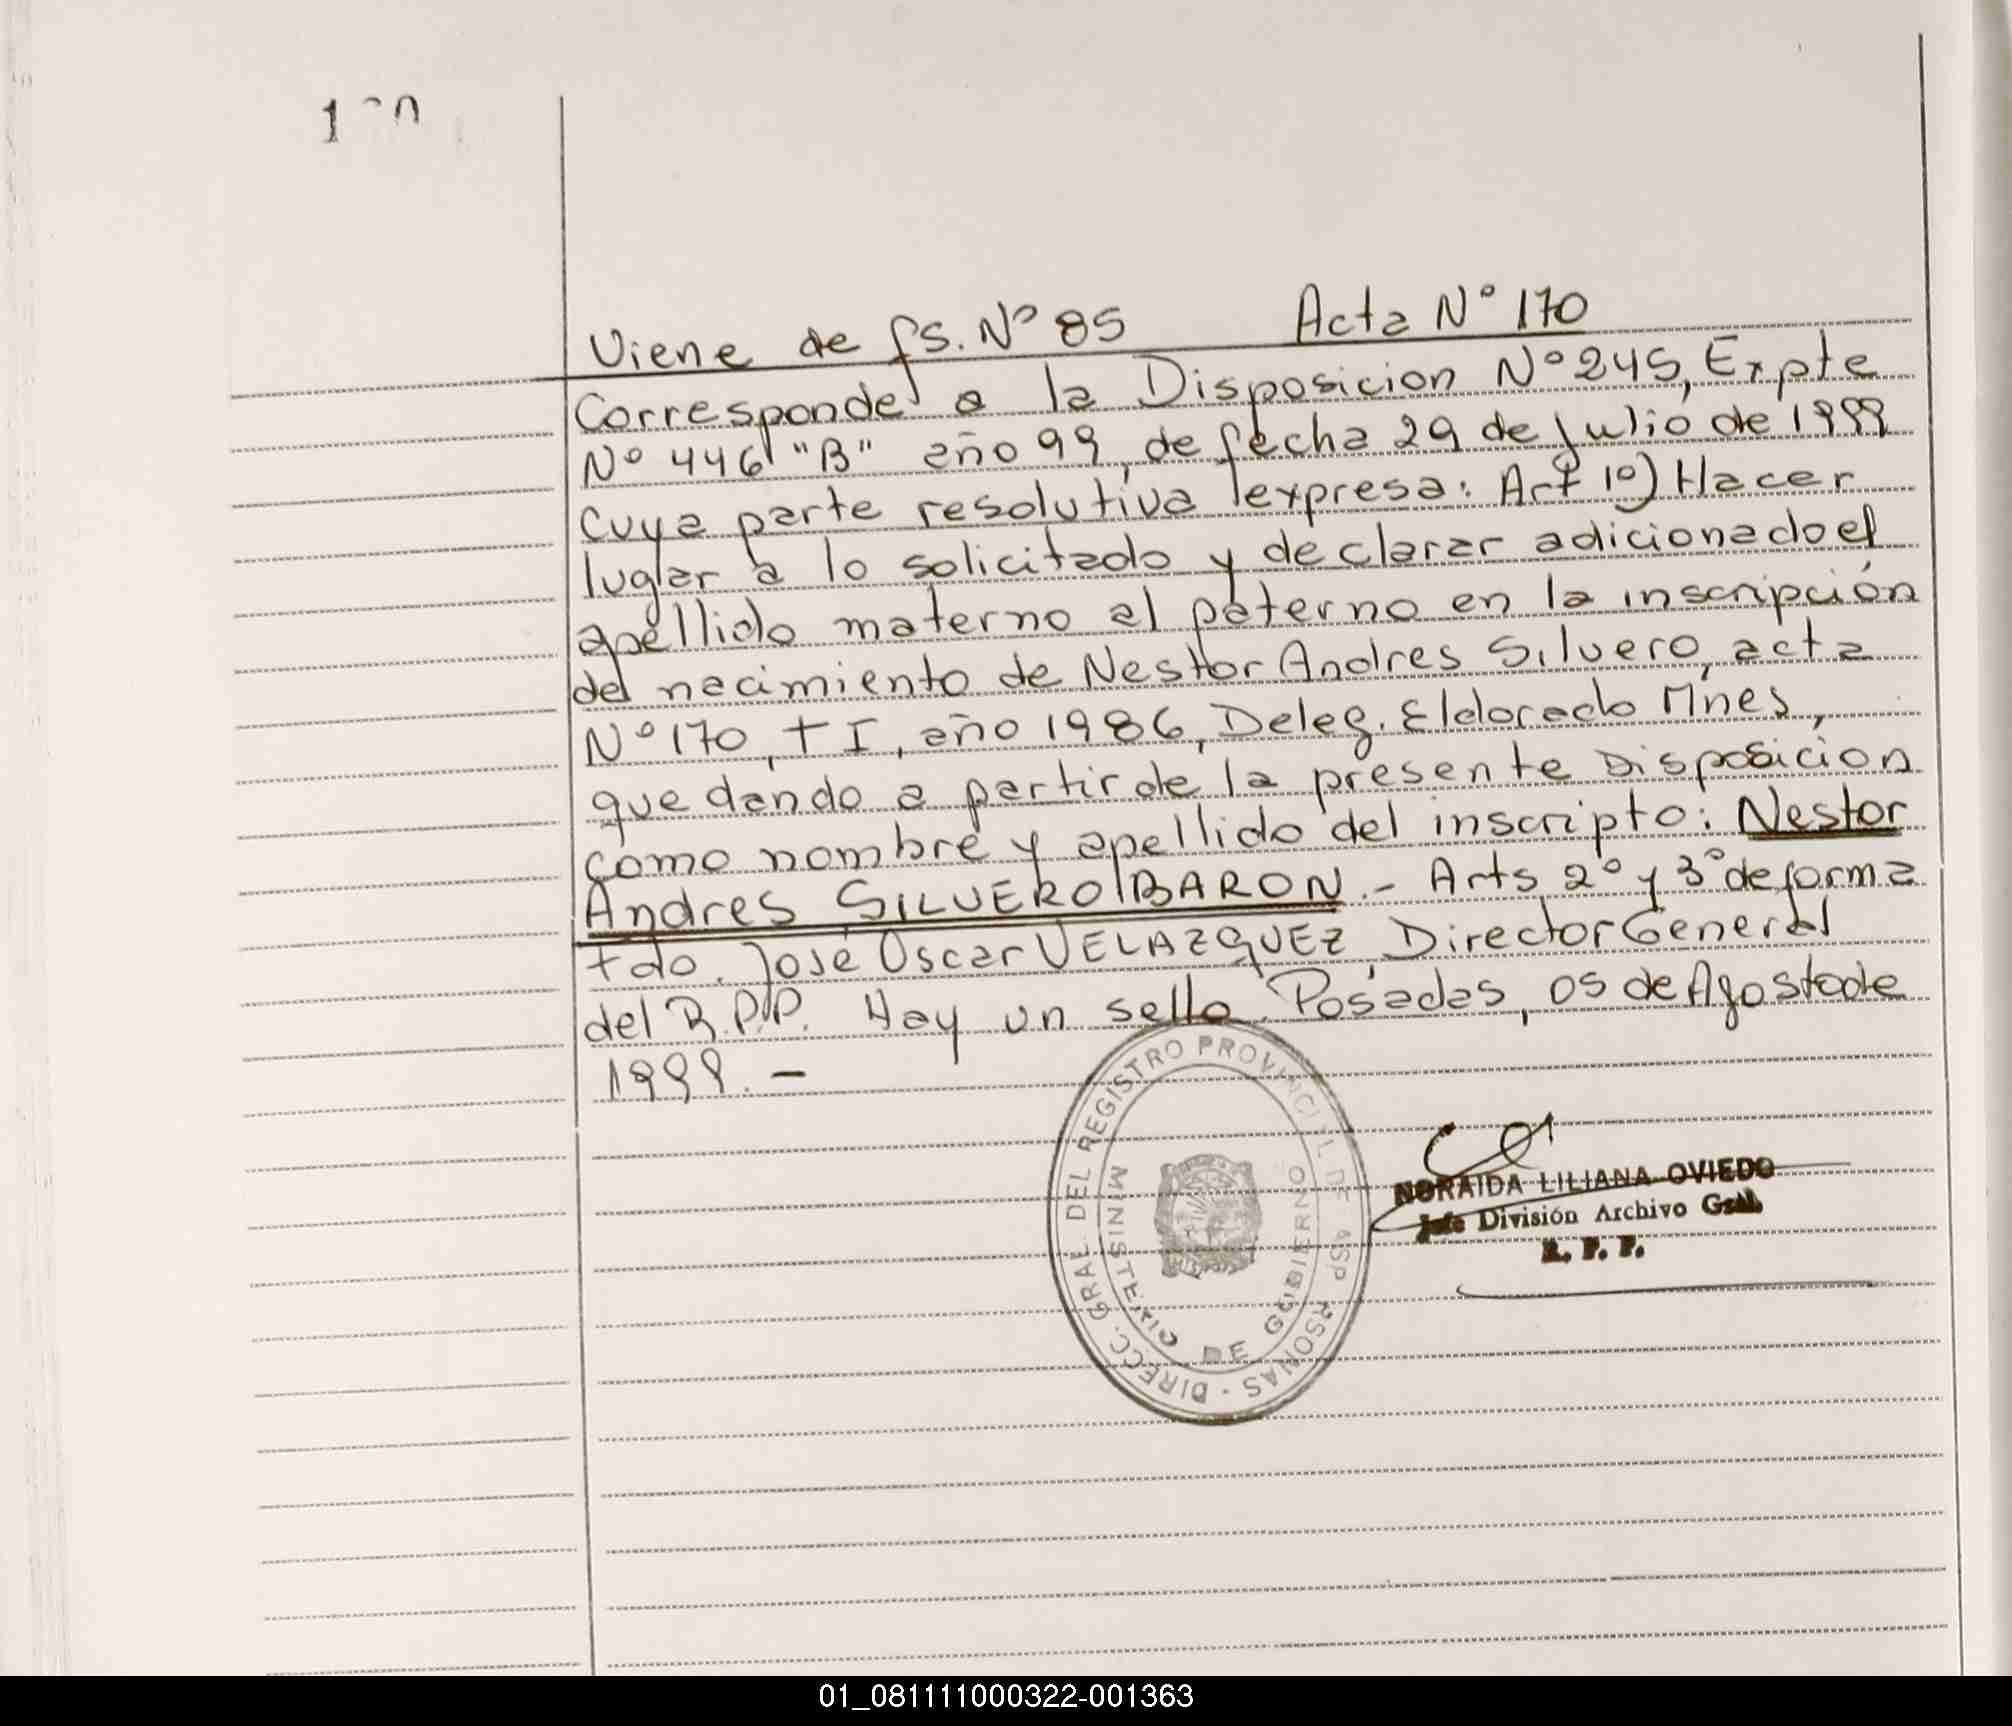 Viene de fs. Nº 85 Acta Nº 170
Corresponde a la Disposicion Nº 245, Expte
Nº 446 "B" año 99, de fecha 29 de Julio de 1999
cuya parte resolutiva expresa: Art 1º) Hacer
lugar a lo solicitado y declarar adicionado el
apellido materno al paterno en la inscripción
del nacimiento de Nestor Andres Silvero, acta
Nº 170, t I, año 1986, Deleg. Eldorado Mnes,
quedando a partir de la presente Disposicion
como nombre y apellido del inscripto: Nestor
Andres SILVERO BARON.- Arts 2º y 3º de forma
fdo. José Oscar VELAZQUEZ, Director General
del R.P.P. Hay un sello. Posadas, 05 de Agosto de
1999.-
DIRECC. GRAL. DEL REGISTRO PROVINCIAL DE
MINISTERIO DE GOBIERNO
NORAIDA LILIANA OVIEDO
Jefe División Archivo Gral.
R. P. P.
01_081111000322-001363